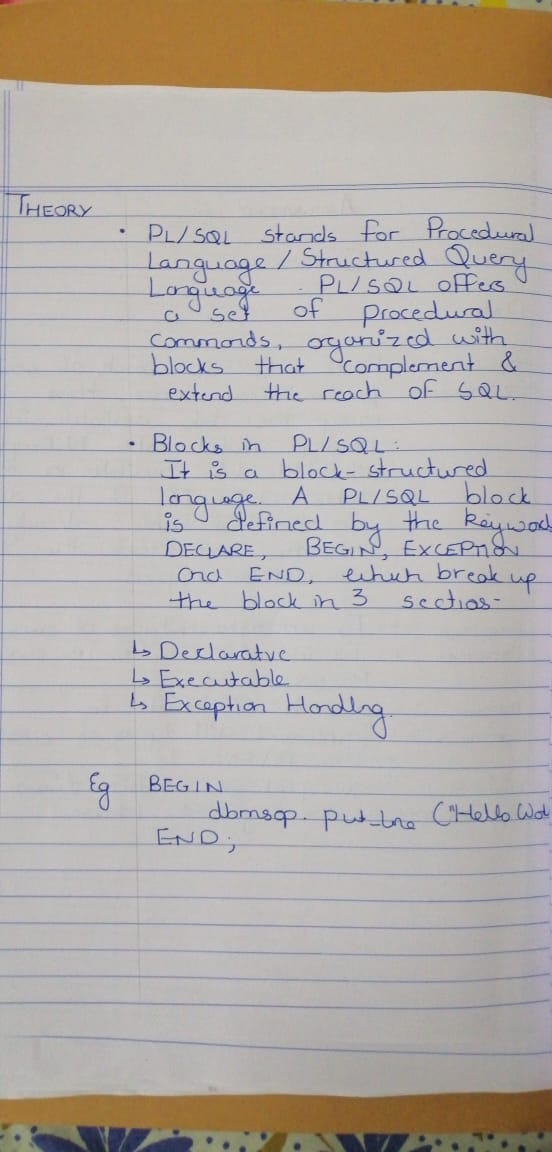 THEORY
• PL/SQL stands for Procedural
Language / Structured Query
Language. PL/SQL offers
a set of procedural
commands, organized with
blocks that complement &
extend the reach of SQL.
• Blocks in PL/SQL:
It is a block-structured
language. A PL/SQL block
is defined by the keywod
DECLARE, BEGIN, EXCEPTION
and END, which break up
the block in 3 sectios-
↳ Declaratve
↳ Executable
↳ Exception Handlng.
Eg BEGIN
dbmsop. put_lne ("Hello Wol
END;